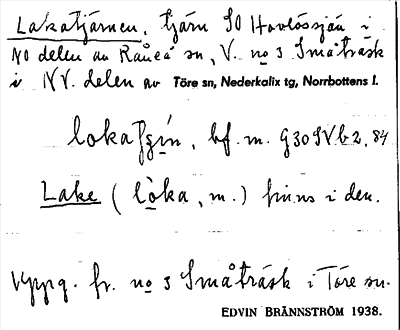 Lakatjärnen, tjärn SO Hovlössjön i
NO delen av Råneå sn, V. no 3 Småträsk
i NV. delen av Töre sn, Nederkalix tg, Norrbottens l.
bf. m. G30SVb2,84
Lake (lòka, m.) finns i den.
Uppg. fr. no 3 Småträsk i Töre sn.
EDVIN BRÄNNSTRÖM 1938.